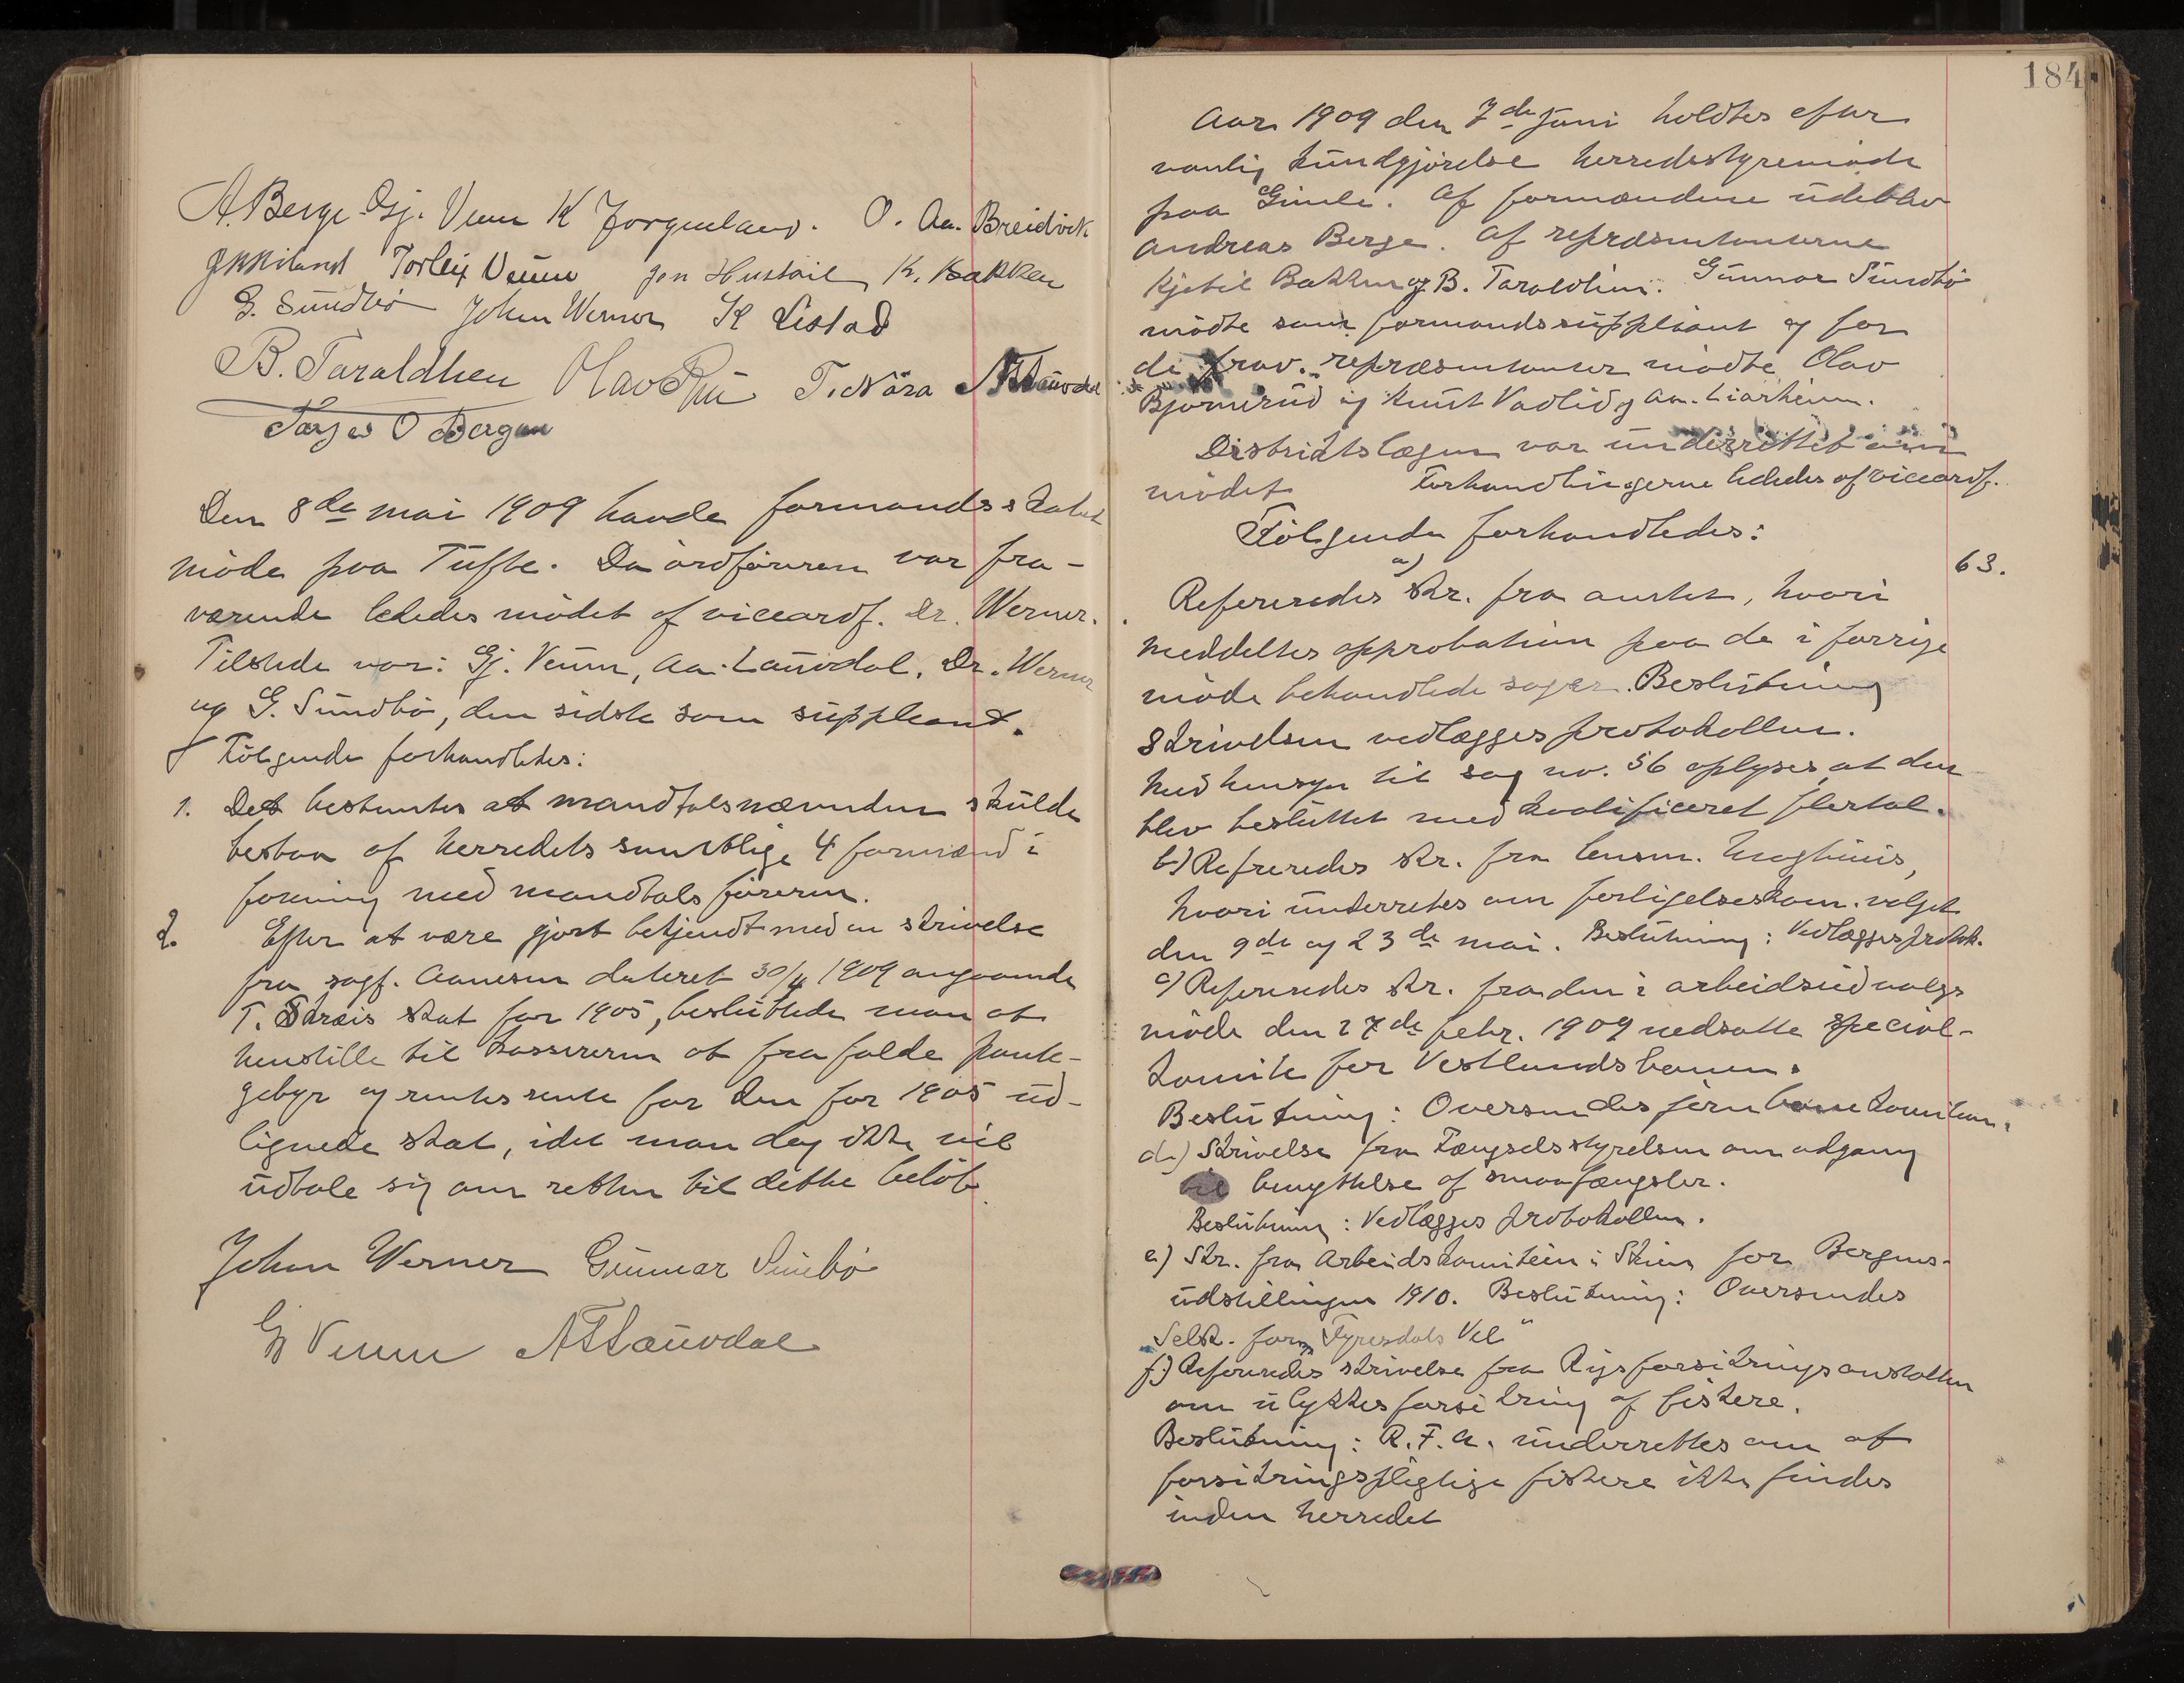 A. Berge Gj. Veum K Jorgenland. O. Aa. Breidvik
Torleif Veum Jon Hustveit K. Bakken
G. Sundbö Johan Werner K Listad
B. Taraldlien Olav Rui T. Nåra A T Lauvdal
Tarjei O Bergan
Den 8de mai 1909 havde formandsskabet
möde paa Tufte. Da ordföreren var fra-
værende lededes mödet af viceordf. dr. Werner.
Tilstede var: Gj. Veum, Aa. Lauvdal, Dr. Werner
og G. Sundbö, den sidste som suppleant.
Fölgende forhandledes:
1. Det bestemtes at mandtalsnævnden skulde
bestaa af herredets samtlige 4 formænd i
forening med mandtalsföreren.
2. Efter at være gjort bekjendt med en skrivelse
fra sagf. Aanesen dateret 30/4 1909 angaaende
T. skat for 1905, besluttede man at
henstille til kassereren at frafalde pante-
gebyr og rentesrente for den for 1905 ud-
lignede skat, idet man dog ikke vil
udtale sig om retten til dette belöb.
Johan Werner Gunnar Sundbö
Gj Veum A T Lauvdal
184
Aar 1909 den 7de juni holdtes efter
vanlig kundgjörelse herredsstyremöde
paa Gimle. Af formændene udeblev
Andreas Berge. Af repræsentanterne
Kjetil Bakken og B. Taraldlien. Gunnar Sundbö
mödte som formandssuppleant og for
de frav. repræsentanter mödte Olav
Bjornerud og Knut Vadlid og Aa. Liarheim.
Distriktslægen var underrettet om
mödet Forhandlingerne lededes af viceordf.
Fölgende forhandledes:
63.
a)
Refereredes skr. fra amtet, hvori
meddeltes approbation paa de i forrige
möde behandlede sager. Beslutning
Skrivelsen vedlægges protokollen.
Med hensyn til sag no. 56 oplyses at den
blev besluttet med kvalificeret flertal.
b) Refereredes skr. fra lensm.
hvori underretes om forligelseskom. valget
den 9de og 23de mai. Beslutning: Vedlægges protok.
c) Refereredes skr. fra den i arbeidsudvalgs
möde den 27de febr. 1909 nedsatte special-
komite for Vestlandsbanen.
Beslutning: Oversendes jernbanekomiteen.
d.) Skrivelse fra Fængselsstyrelsen om adgang
til benyttelse af smaafængsler.
Beslutning: Vedlægges protokollen.
e) Skr. fra Arbeidskomiteen i Skien for Bergens-
udstillingen 1910. Beslutning: Oversendes
Selsk. for „Tyresdals Vel"
f.) Refereredes skrivelse fra Rigsforsikringsanstalten
om ulykkesforsikring af fiskere.
Beslutning: R.F.A. underrettes om at
forsikringspligtige fiskere ikke findes
inden herredet